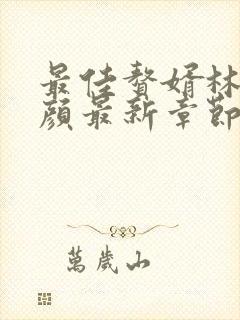 最佳赘婿林
颜最新章节
萬歲山